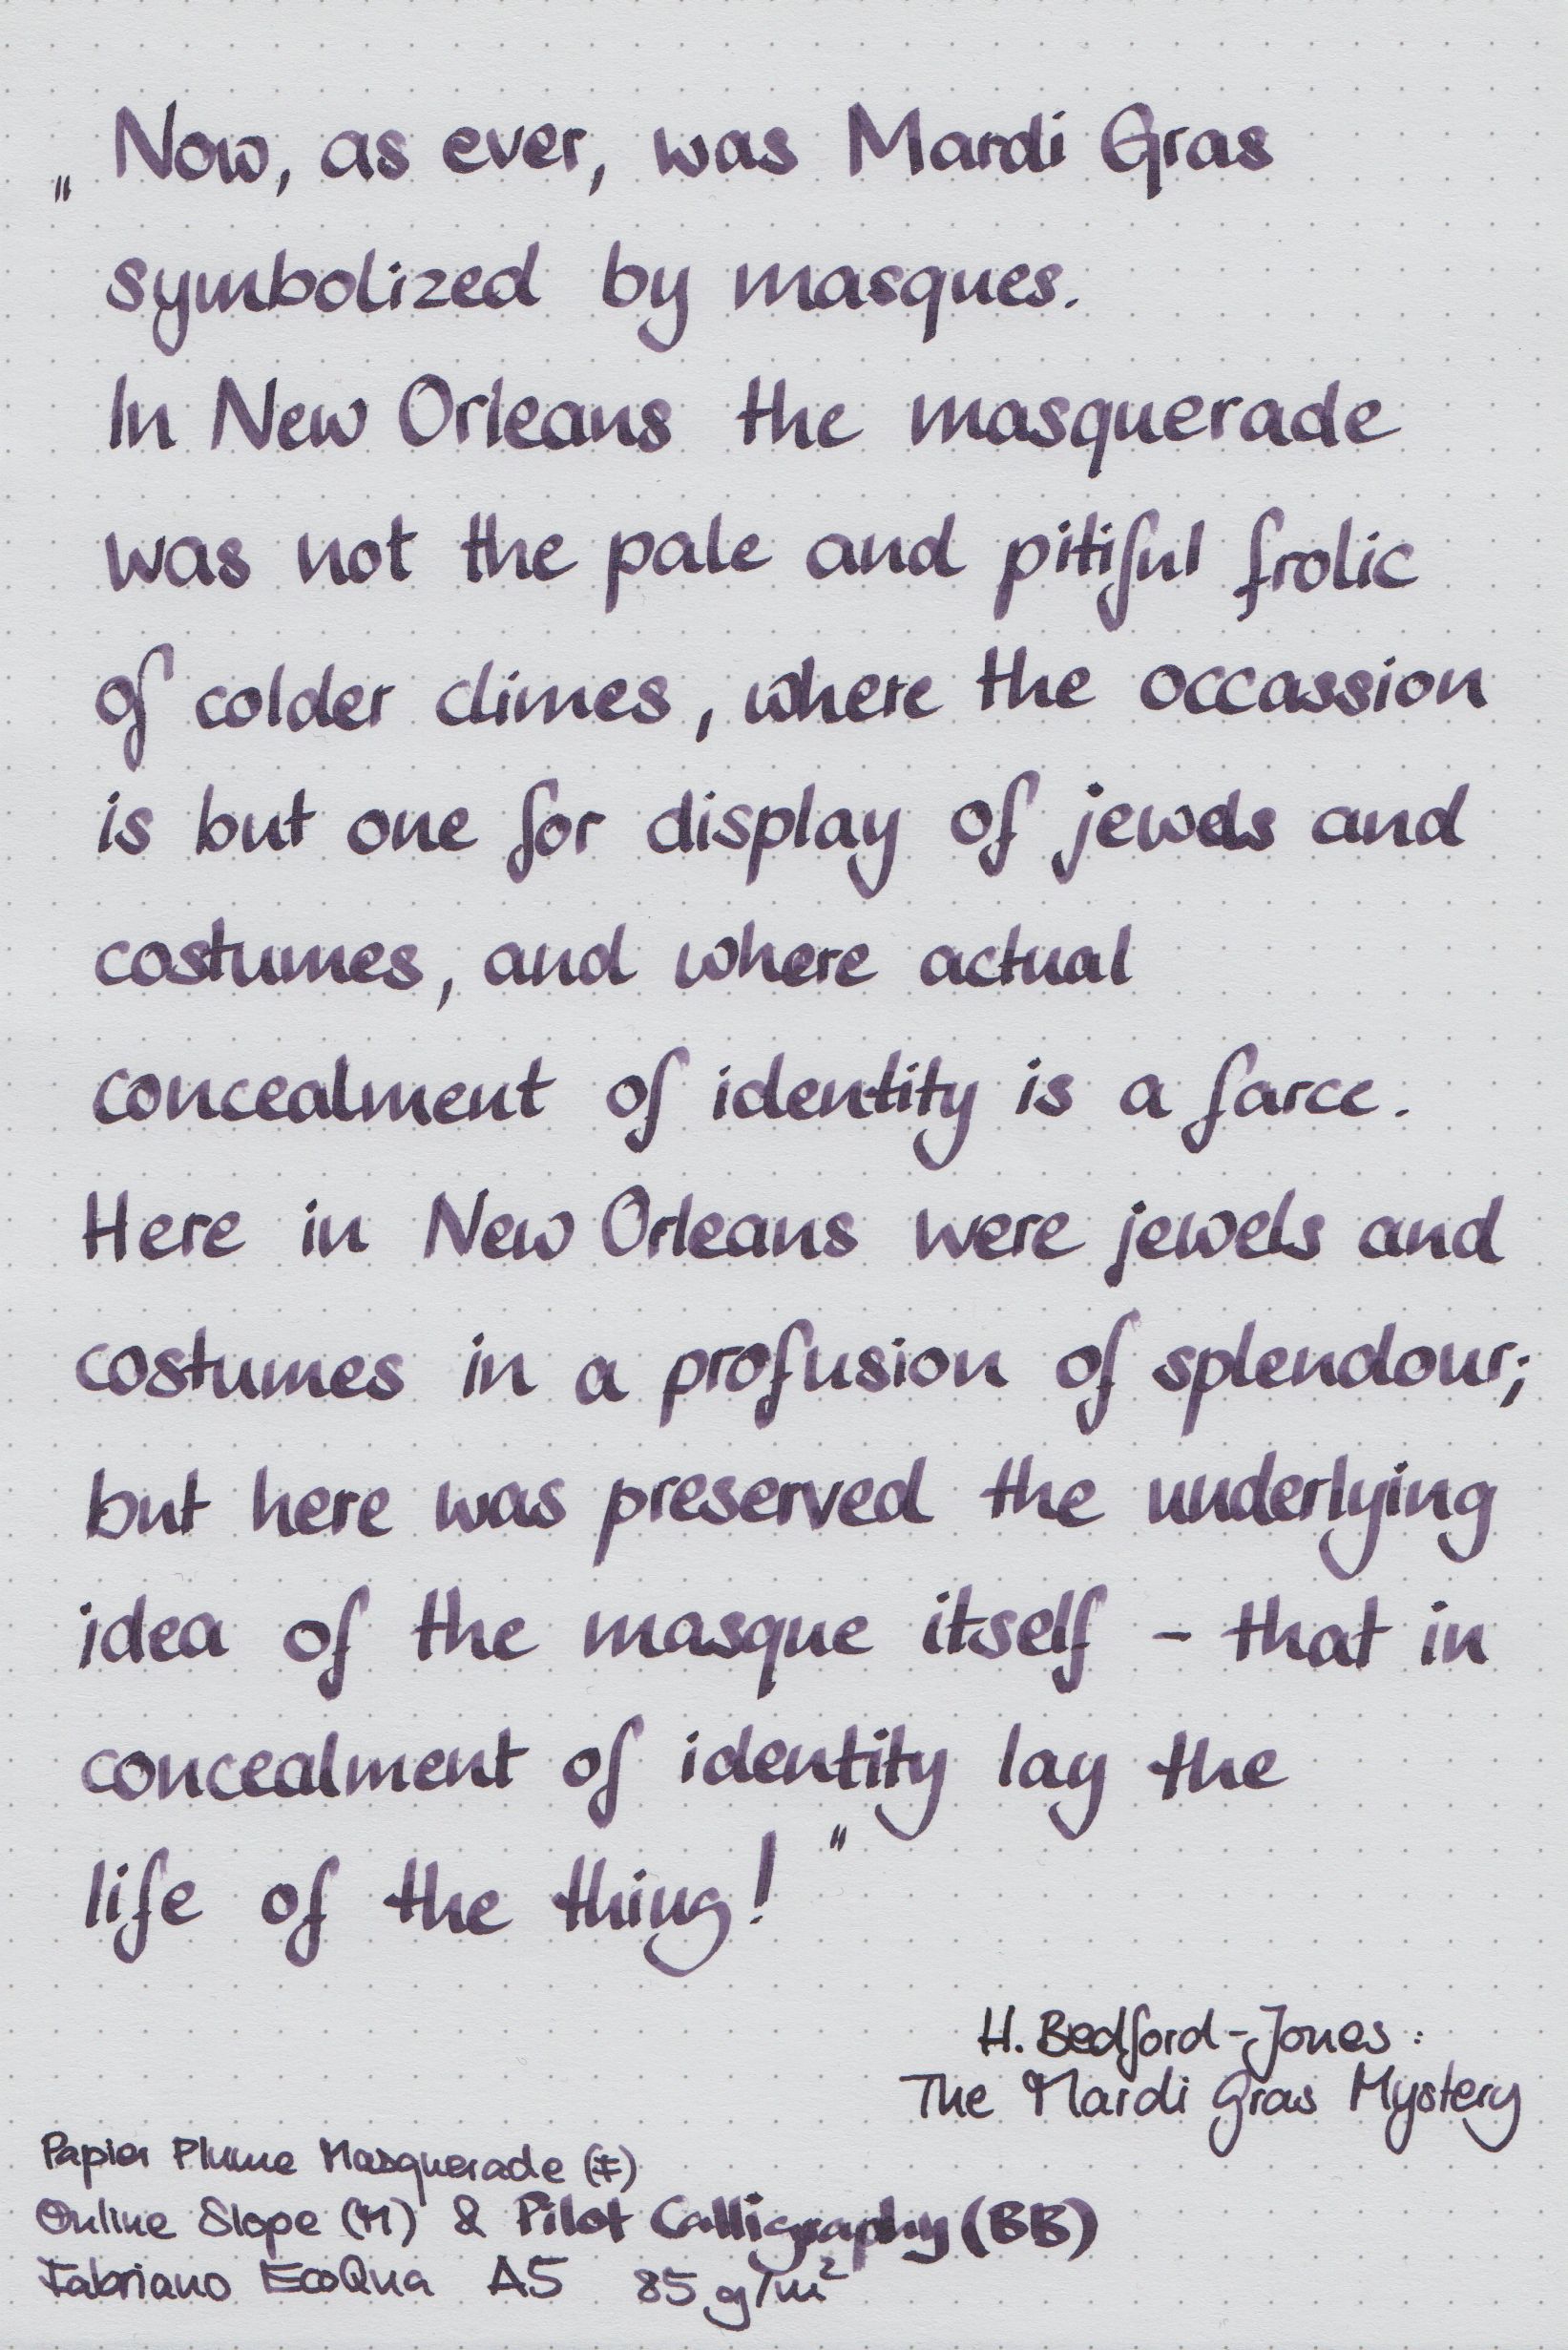 „Now, as ever, was Mardi Gras
symbolized by masques.
In New Orleans the masquerade
was not the pale and pitiful frolic
of colder climes, where the occassion
is but one for display of jewels and
costumes, and where actual
concealment of identity is a farce.
Here in New Orleans were jewels and
costumes in a profusion of splendour;
but here was preserved the underlying
idea of the masque itself - that in
concealment of identity lay the
life of the thing!"
H. Bedford-Jones:
The Mardi Gras Mystery
Papier Plume Masquerade (I)
Online Slope (M) & Pilot Calligraphy (BB)
Fabriano EcoQua A5 85 g/m²